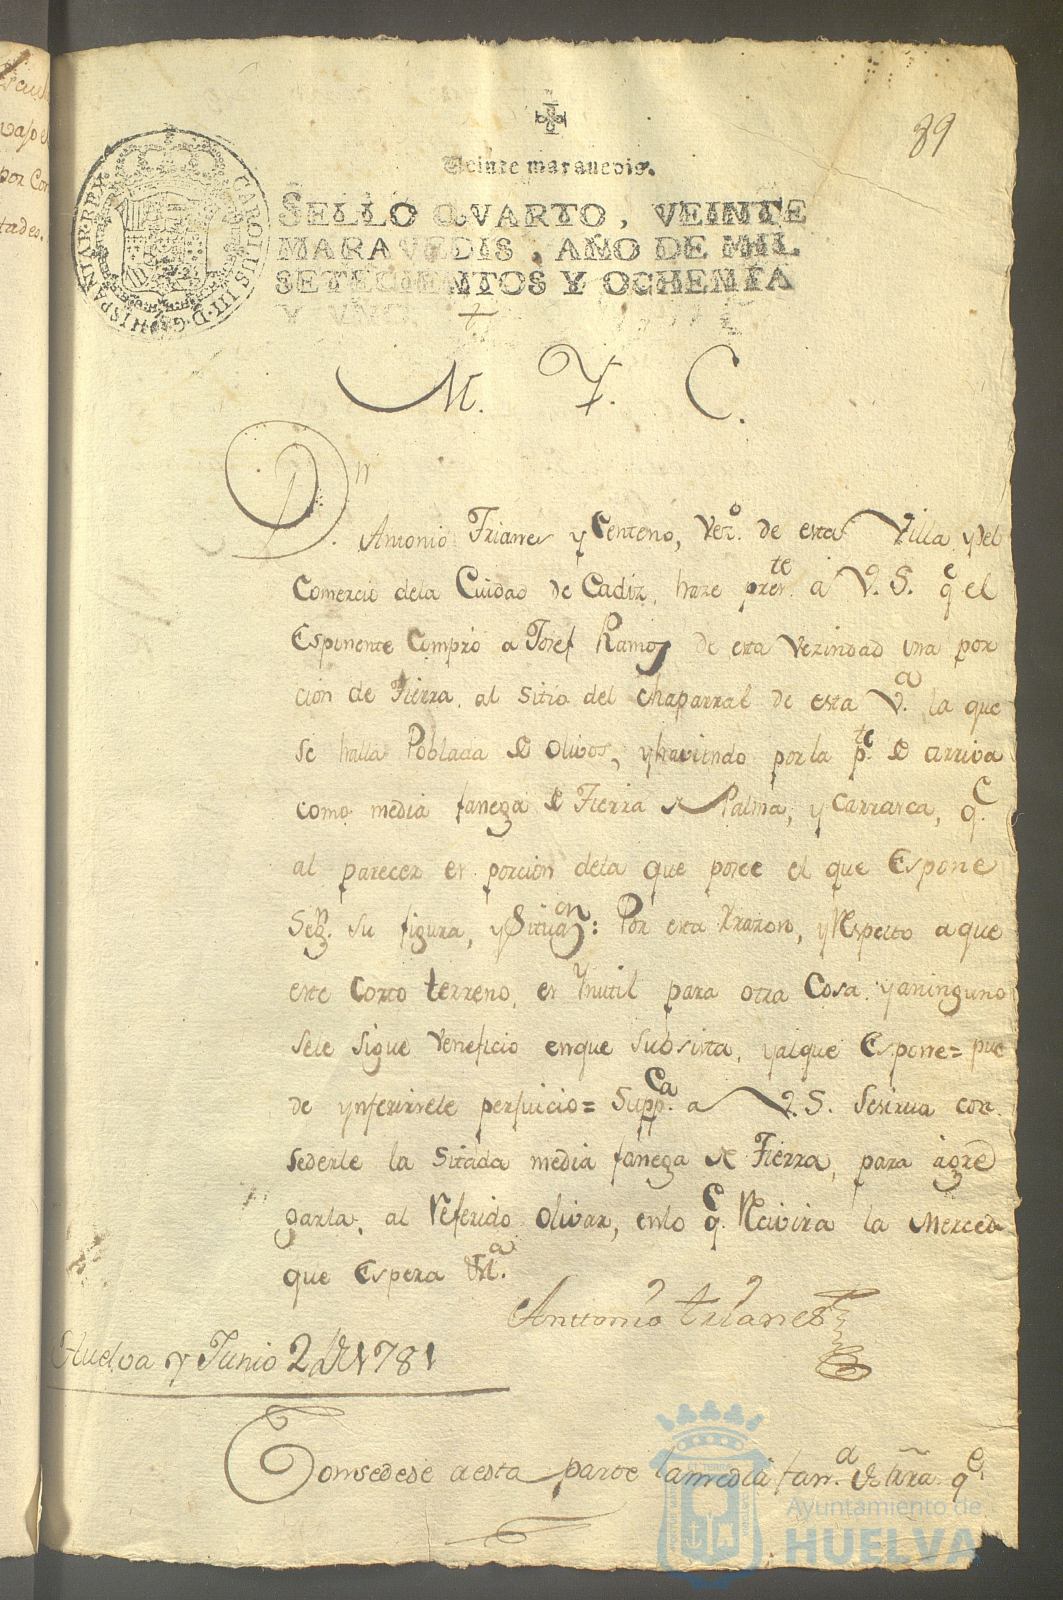 89
Veinte maravedis.
SELLO QVARTO, VEINTE
MARAVEDIS, AÑO DE MIL
SETECIENTOS Y OCHENTA
Y UNO.
CAROLUS III D G HISPANIAR REX
M. Y. C.
Dn. Antonio Trianes y Centeno, Vezo. de esta Villa y del
Comercio dela Ciudad de Cadiz, haze preste. a V. S. qe el
Esponente Compro a Josef Ramos de esta Vezindad una por
cion de Tierra, al sitio del Chaparral de esta Va. la que
se halla Poblada de olivos, y haviendo por la pte. de arriva
como media fanega de Tierra de Palma, y carrasca, qe.
al parecer es porcion dela que posee el que Espone
Segn. su figura, y Situaon: Por esta rrazon, y Respecto a que
este Corto terreno, es Ynutil para otra Cosa, y aninguno
sele sigue veneficio enque subsista, y alque Espone= pue
de ynferirsele perjuicio= Suppca. a V. S. Sesirva con
sederle la sitada media fanega de Tierra, para agre
garla, al Referido olivar, en lo qe. Recivira la Merced
que Espera &a.
Anttonio trianes
Huelva y Junio 2 de 1781
Consedese a esta parte la media fana. de trra. qe.
Ayuntamiento de
HUELVA